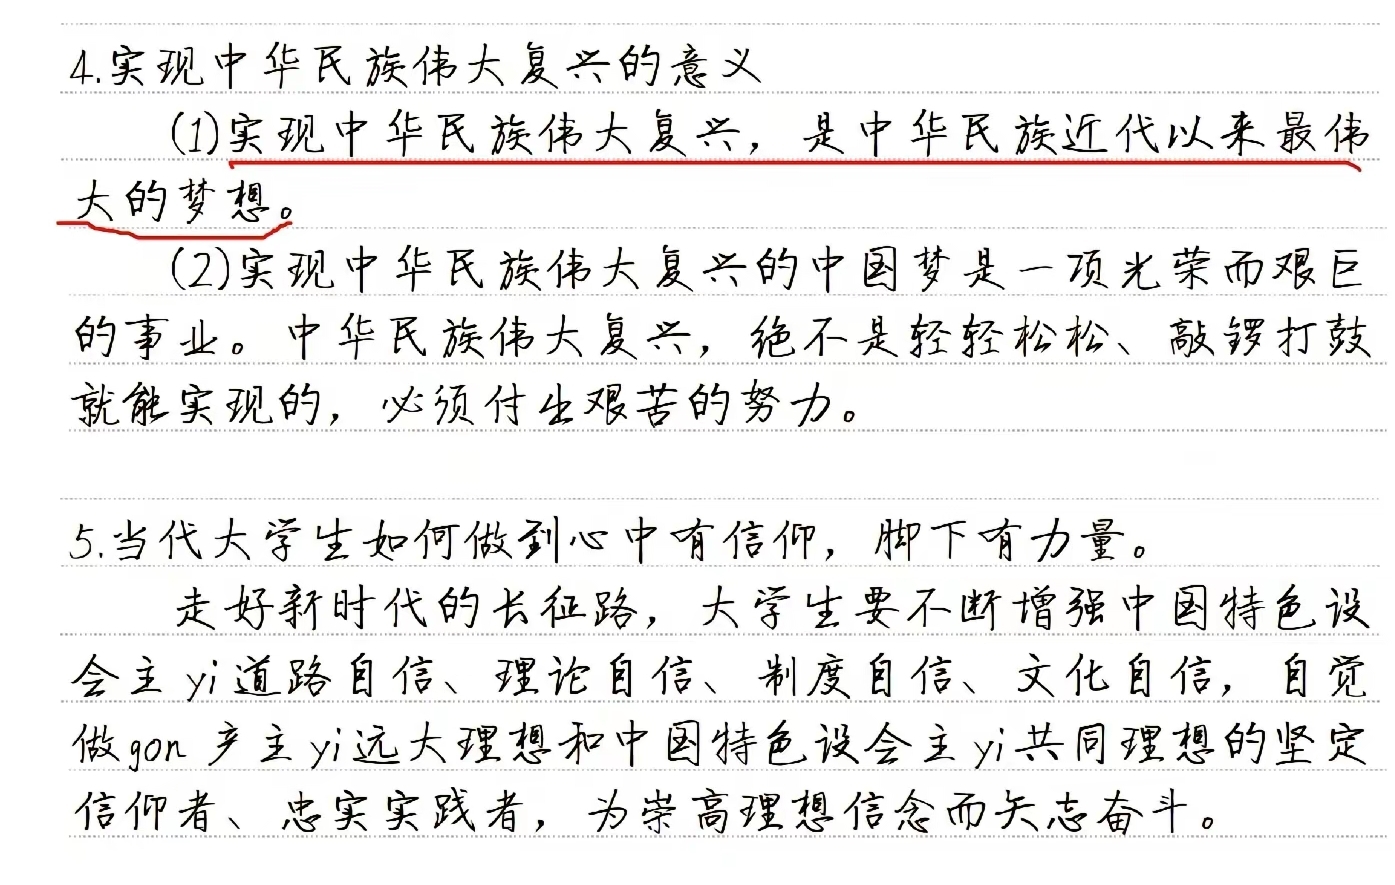 4.实现中华民族伟大复兴的意义
(1)实现中华民族伟大复兴，是中华民族近代以来最伟
大的梦想。
(2)实现中华民族伟大复兴的中国梦是一项光荣而艰巨
的事业。中华民族伟大复兴，绝不是轻轻松松、敲锣打鼓
就能实现的，必须付出艰苦的努力。
5.当代大学生如何做到心中有信仰，脚下有力量。
走好新时代的长征路，大学生要不断增强中国特色设
会主yi道路自信、理论自信、制度自信、文化自信，自觉
做gon产主yi远大理想和中国特色设会主yi共同理想的坚定
信仰者、忠实实践者，为崇高理想信念而矢志奋斗。